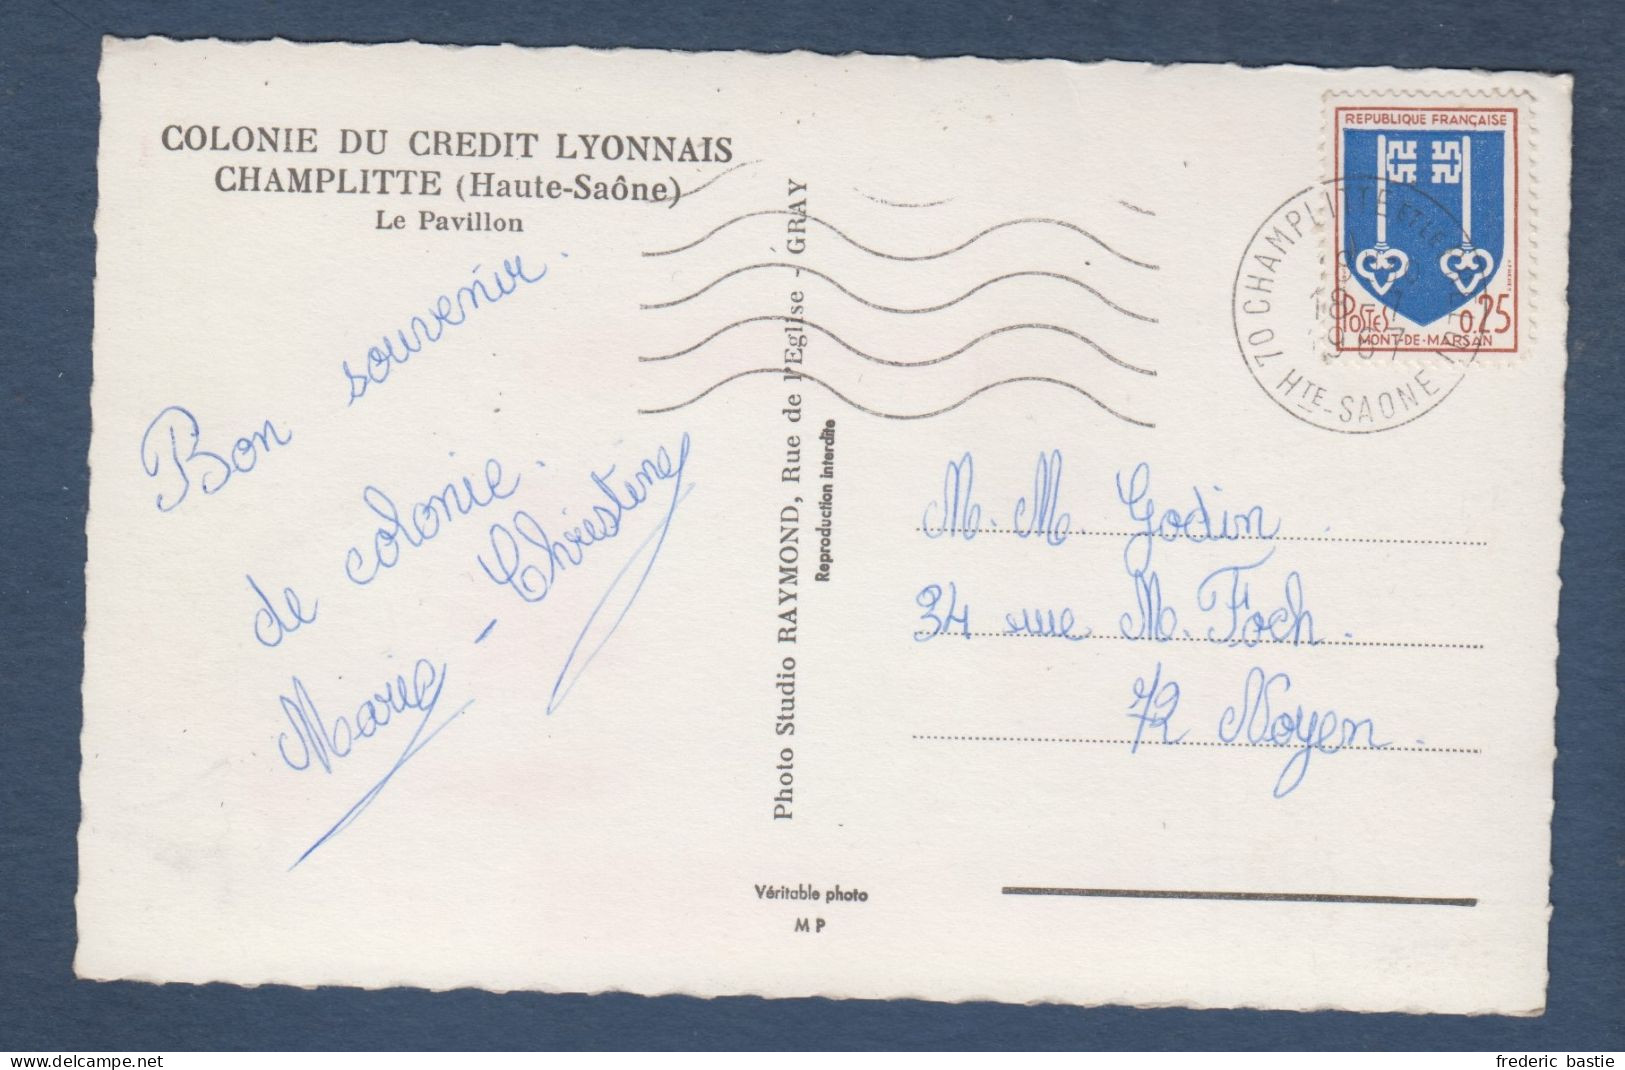 COLONIE DU CREDIT LYONNAIS
CHAMPLITTE (Haute-Saône)
Le Pavillon
Bon souvenir.
de colonie.
Marie-Christine
Photo Studio RAYMOND, Rue de l'Eglise - GRAY
Reproduction interdite
Véritable photo
M P
REPUBLIQUE FRANÇAISE
POSTES 0.25
MONT-DE-MARSAN
70 CHAMPLITTE ET LE
18 -7
1967
HTE-SAONE
M. M. Godin
34 rue M. Foch.
72 Noyen.
frederic bastie